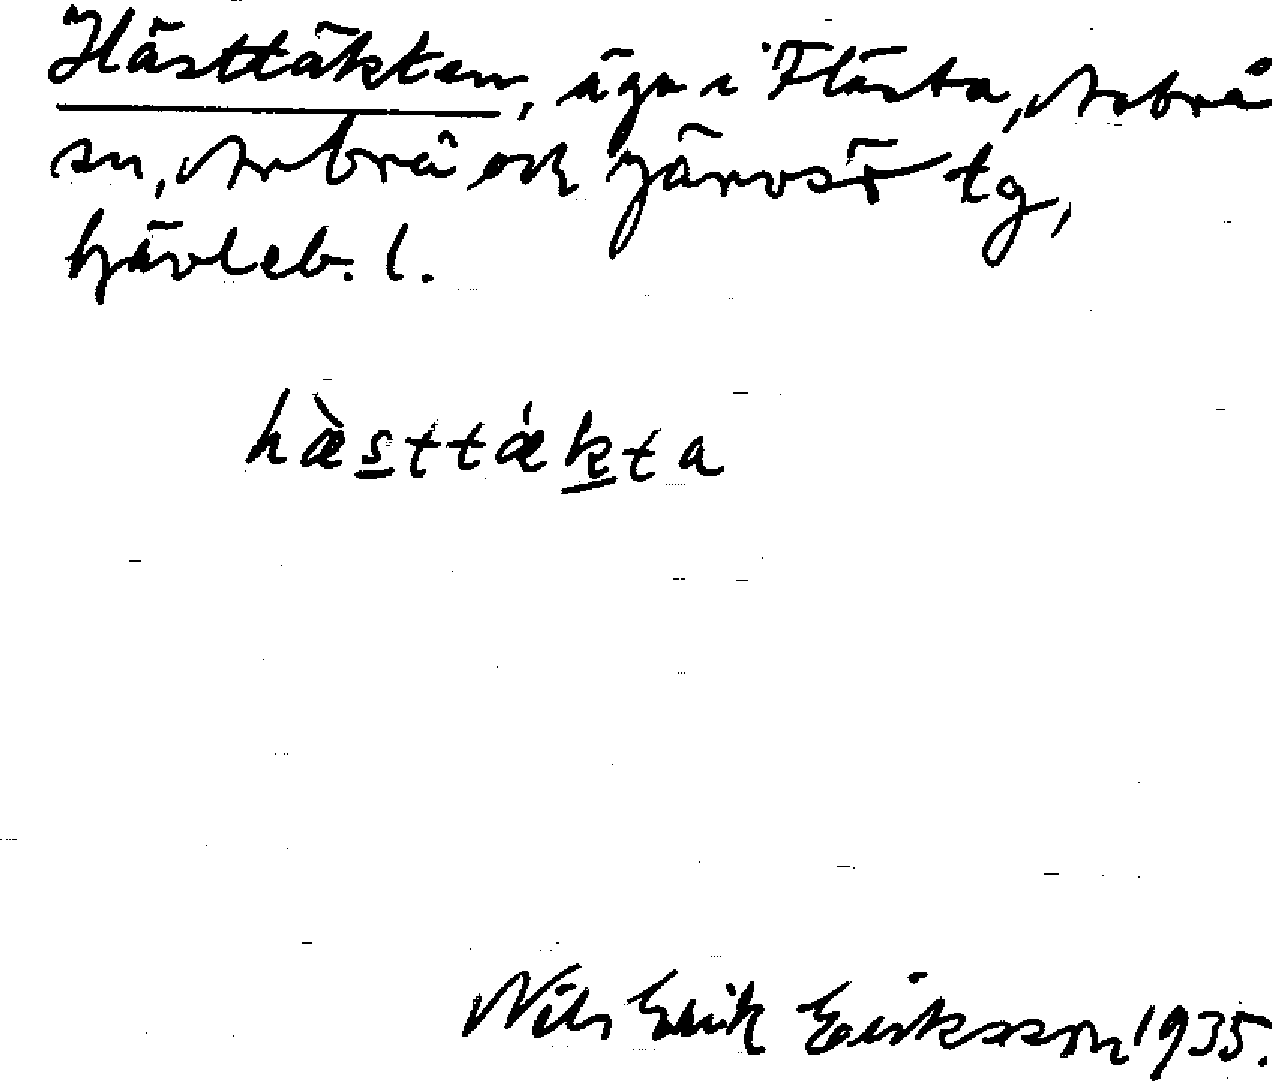 Hästtäkten, äga i Flästa, Arbrå
sn, Arbrå och Järvsö tg,
Gävleb. l.
hæ̀sttǽkta
Nils Erik Eriksson 1935.